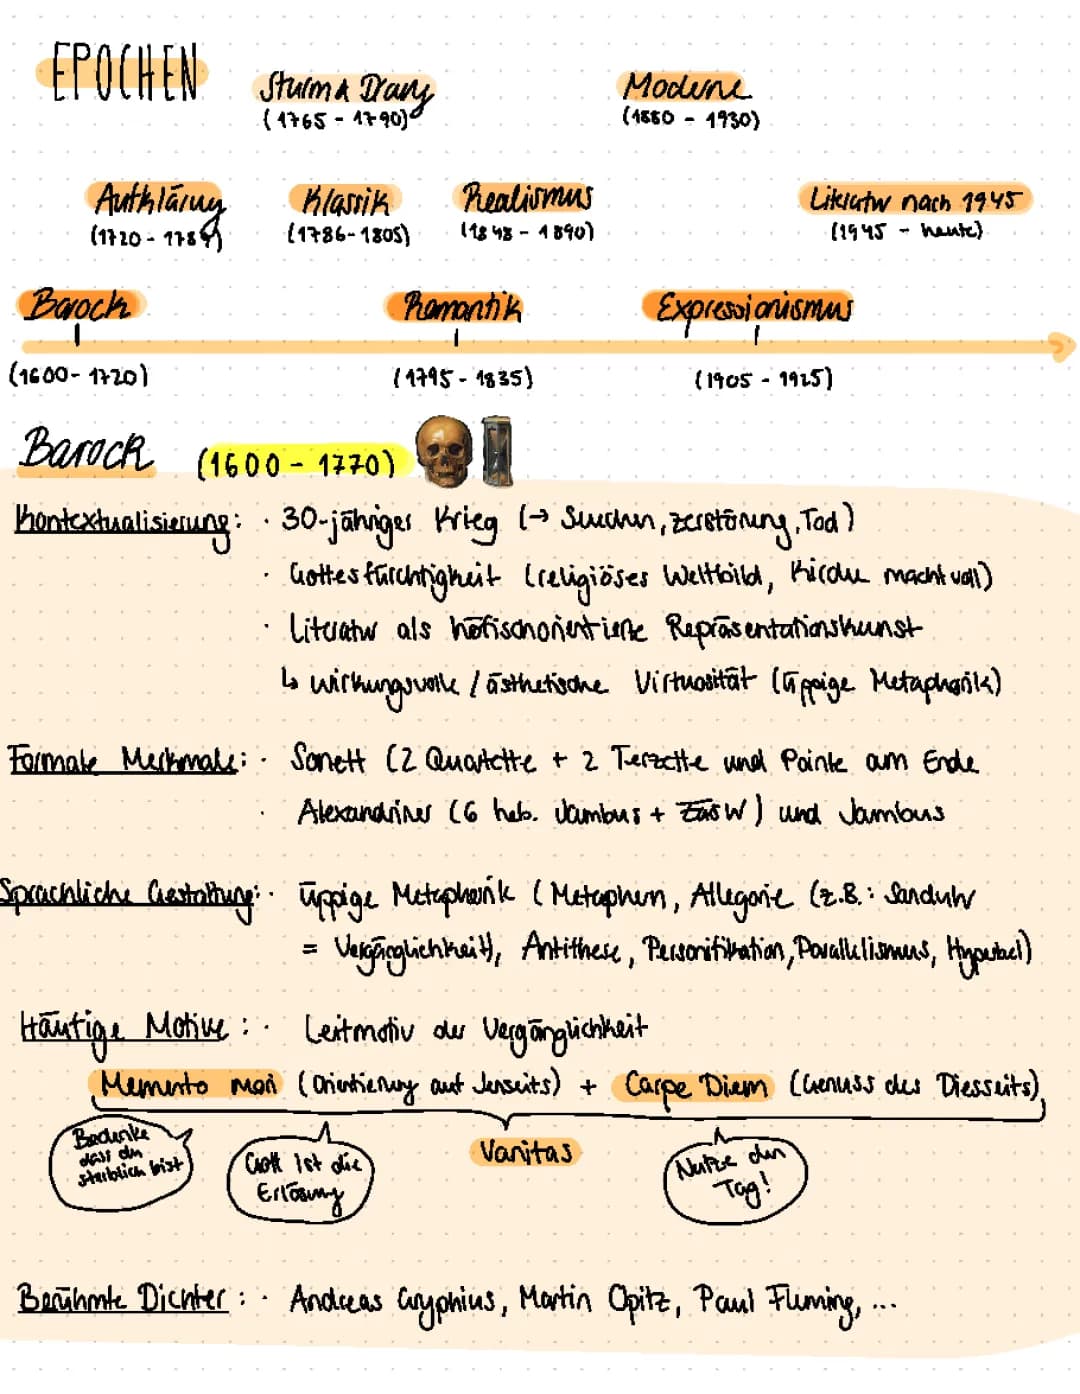 EPOCHEN
Sturm & Drang
(1765 - 1790)
Moderne
(1880 - 1930)
Aufklärung
(1720 - 1789)
Klassik
(1786-1805)
Realismus
(1848 - 1890)
Literatur nach 1945
(1945 - heute)
Barock
Romantik
Expressionismus
(1600- 1720)
(1795 - 1835)
(1905 - 1925)
Barock (1600 - 1770)
Kontextualisierung: · 30-jähriger Krieg (→ Seuchen, zerstörung, Tod)
· Gottesfürchtigkeit (religiöses Weltbild, Kirche machtvoll)
· Literatur als höfischorientierte Repräsentationskunst
↳ wirkungsvolle / ästhetische Virtuosität (üppige Metaphorik)
Formale Merkmale: · Sonett (2 Quartette + 2 Terzette und Pointe am Ende
· Alexandriner (6 heb. Jambus + Zäsur) und Jambus
Sprachliche Gestaltung: · üppige Metaphorik (Metaphern, Allegorie (z.B.: Sanduhr
= Vergänglichkeit), Antithese, Personifikation, Parallelismus, Hyperbel)
Häufige Motive: · Leitmotiv der Vergänglichkeit
Memento mori (Orientierung auf Jenseits) + Carpe Diem (Genuss des Diesseits)
Bedenke
dass du
sterblich bist
Gott ist die
Erlösung
Vanitas
Nutze den
Tag!
Berühmte Dichter: · Andreas Gryphius, Martin Opitz, Paul Fleming, ...